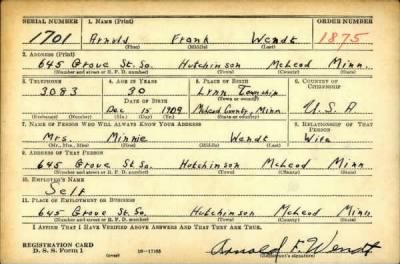 SERIAL NUMBER 1. NAME (Print) ORDER NUMBER
1701 Arnold Frank Wendt 1875
(First) (Middle) (Last)
2. ADDRESS (Print)
645 Grove St. So. Hutchinson McLeod Minn.
(Number and street or R. F. D. number) (Town) (County) (State)
3. TELEPHONE 4. AGE IN YEARS 5. PLACE OF BIRTH 6. COUNTRY OF CITIZENSHIP
3083 30 Lynn Township
DATE OF BIRTH (Town or county)
Dec 15 1909 McLeod County, Minn U.S.A
(Exchange) (Number) (Mo.) (Day) (Yr.) (State or country)
7. NAME OF PERSON WHO WILL ALWAYS KNOW YOUR ADDRESS 8. RELATIONSHIP OF THAT PERSON
Mrs. Minnie Wendt Wife
(Mr., Mrs., Miss) (First) (Middle) (Last)
9. ADDRESS OF THAT PERSON
645 Grove St. So. Hutchinson McLeod Minn
(Number and street or R. F. D. number) (Town) (County) (State)
10. EMPLOYER'S NAME
Self
11. PLACE OF EMPLOYMENT OR BUSINESS
645 Grove St. So. Hutchinson McLeod Minn.
(Number and street or R. F. D. number) (Town) (County) (State)
I AFFIRM THAT I HAVE VERIFIED ABOVE ANSWERS AND THAT THEY ARE TRUE.
REGISTRATION CARD
D. S. S. Form 1 (over) Arnold F. Wendt
(Registrant's signature)